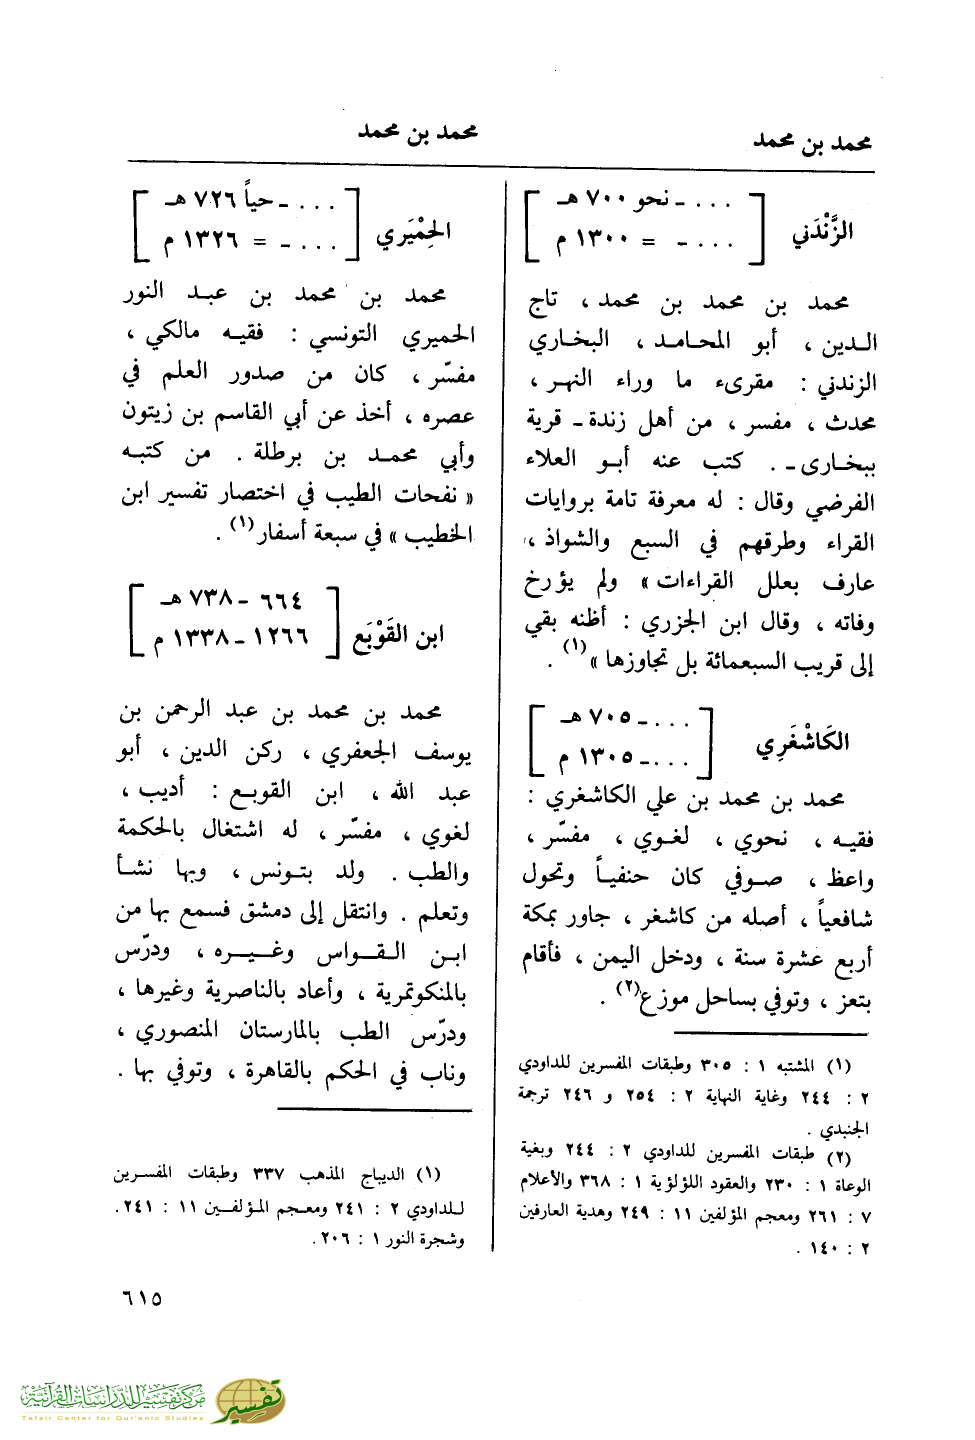 محمد بن محمد
محمد بن محمد
الزَّنْدَني
. . . ـ نحو ٧٠٠ هـ
. . . ـ = ١٣٠٠ م
محمد بن محمد بن محمد ، تاج
الدين ، أبو المحامد ، البخاري
الزندني : مقرىء ما وراء النهر ،
محدث ، مفسر ، من أهل زندة ـ قرية
ببخارى ـ . كتب عنه أبو العلاء
الفرضي وقال : له معرفة تامة بروايات
القراء وطرقهم في السبع والشواذ ،
عارف بعلل القراءات » ولم يؤرخ
وفاته ، وقال ابن الجزري : أظنه بقي
إلى قريب السبعمائة بل تجاوزها »(١) .
الكَاشْغَرِي
. . . ـ ٧٠٥ هـ
. . . ـ ١٣٠٥ م
محمد بن محمد بن علي الكاشغري :
فقيه ، نحوي ، لغوي ، مفسّر ،
واعظ ، صوفي كان حنفياً وتحول
شافعياً ، أصله من كاشغر ، جاور بمكة
أربع عشرة سنة ، ودخل اليمن ، فأقام
بتعز ، وتوفي بساحل موزع(٢) .
(١) المشتبه ١ : ٣٠٥ وطبقات المفسرين للداودي
٢ : ٢٤٤ وغاية النهاية ٢ : ٢٥٤ و ٢٤٦ ترجمة
الجنبدي .
(٢) طبقات المفسرين للداودي ٢ : ٢٤٤ وبغية
الوعاة ١ : ٢٣٠ والعقود اللؤلؤية ١ : ٣٦٨ والأعلام
٧ : ٢٦١ ومعجم المؤلفين ١١ : ٢٤٩ وهدية العارفين
٢ : ١٤٠ .
الحِمْيَري
. . . ـ حياً ٧٢٦ هـ
. . . ـ = ١٣٢٦ م
محمد بن محمد بن عبد النور
الحميري التونسي : فقيه مالكي ،
مفسّر ، كان من صدور العلم في
عصره ، أخذ عن أبي القاسم بن زيتون
وأبي محمد بن برطلة . من كتبه
« نفحات الطيب في اختصار تفسير ابن
الخطيب » في سبعة أسفار(١) .
ابن القَوْبَع
٦٦٤ ـ ٧٣٨ هـ
١٢٦٦ ـ ١٣٣٨ م
محمد بن محمد بن عبد الرحمن بن
يوسف الجعفري ، ركن الدين ، أبو
عبد الله ، ابن القوبع : أديب ،
لغوي ، مفسّر ، له اشتغال بالحكمة
والطب . ولد بتونس ، وبها نشأ
وتعلم . وانتقل إلى دمشق فسمع بها من
ابن القواس وغيره ، ودرّس
بالمنكوتمرية ، وأعاد بالناصرية وغيرها ،
ودرّس الطب بالمارستان المنصوري ،
وناب في الحكم بالقاهرة ، وتوفي بها .
(١) الديباج المذهب ٣٣٧ وطبقات المفسرين
للداودي ٢ : ٢٤١ ومعجم المؤلفين ١١ : ٢٤١ .
وشجرة النور ١ : ٢٠٦ .
٦١٥
مركز تفسير للدراسات القرآنية
Tafsir Center for Qur'anic Studies
تفسير